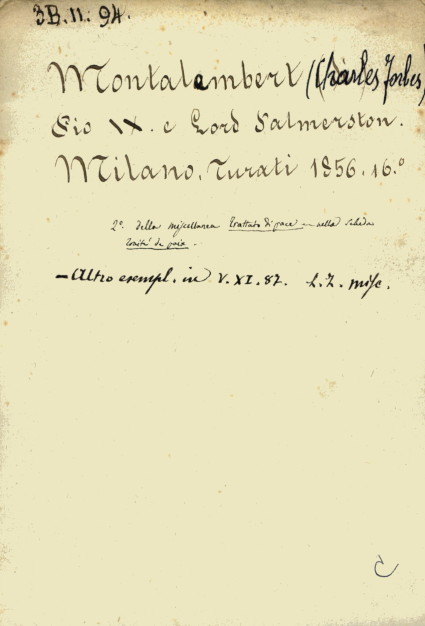 3B.11.94.
Montalembert (Charles Forbes)
Pio IX. e Lord Palmerston.
Milano, Turati 1856. 16.º
2º. della miscellanea trattato di pace — nella scheda
Traité de paix.
— Altro esempl. in V. XI. 87. L. Z. misc.
C